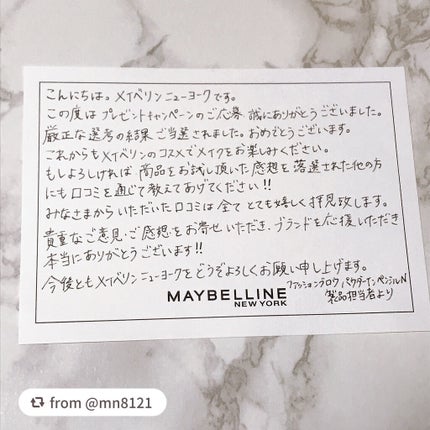 こんにちは。メイベリン ニューヨークです。
この度は プレゼントキャンペーンのご応募 誠にありがとうございました。
厳正な選考の結果 ご当選されました。おめでとうございます。
これからもメイベリンのコスメでメイクをお楽しみください。
もしよろしければ 商品をお試し頂いた感想を 落選された他の方
にも 口コミを通じて教えてあげてください!!
みなさまからいただいた口コミは全て とても嬉しく拝見致します。
貴重なご意見・ご感想をお寄せいただき、ブランドを応援いただき
本当にありがとうございます!!
今後ともメイベリン ニューヨークをどうぞよろしくお願い申し上げます。
MAYBELLINE
NEW YORK
ファッションブロウ パウダーインペンシルN
製品担当者より
from @mn8121